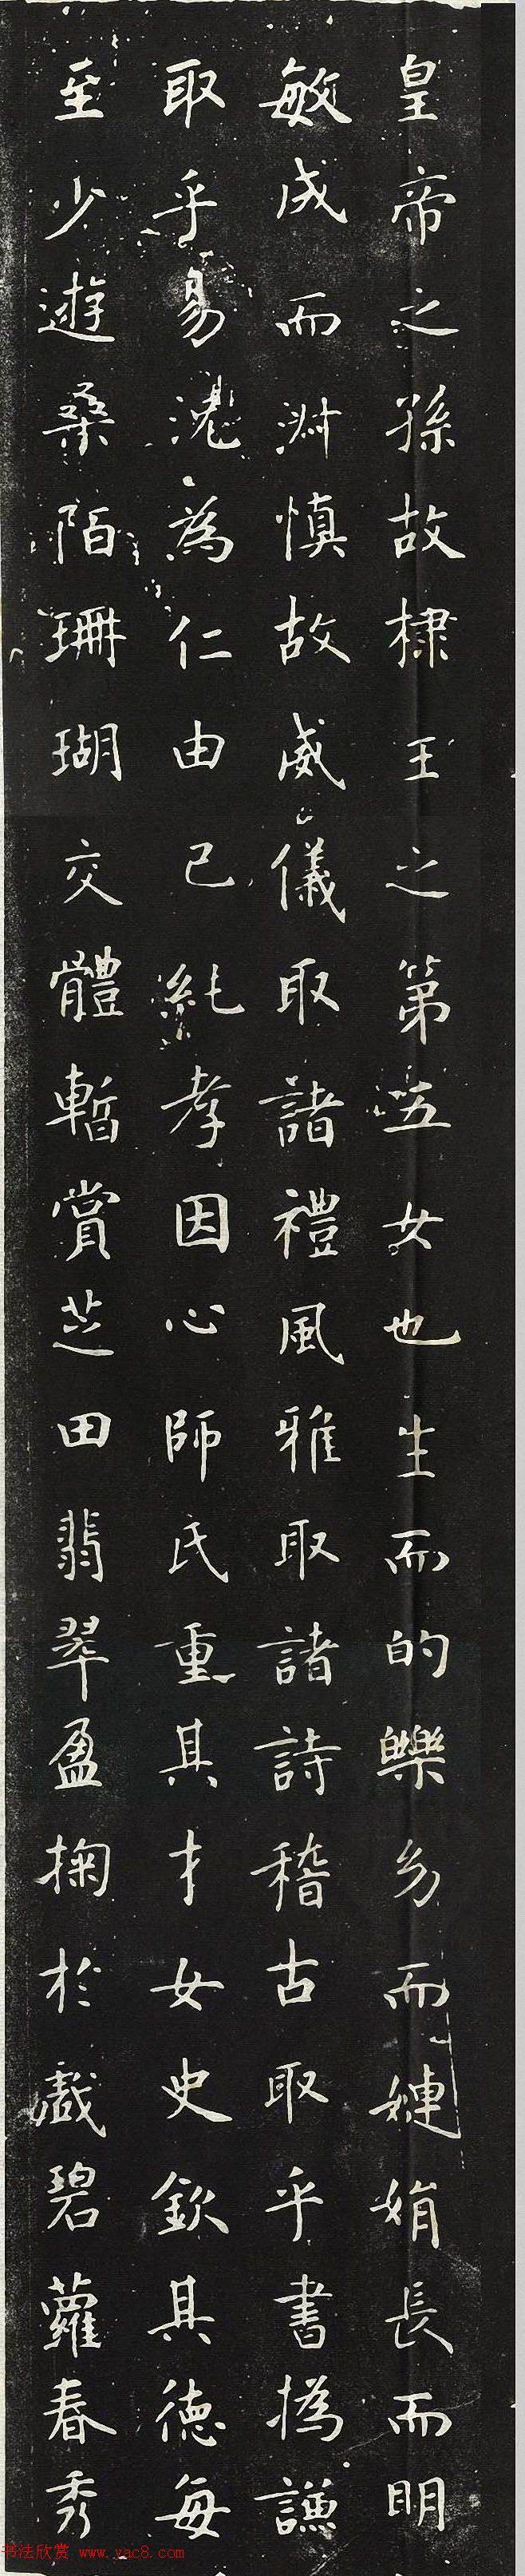 皇帝之孫故棣王之第五女也生而的皪幼而㜻娟長而明
敏成而淋慎故威儀取諸禮風雅取諸詩稽古取乎書撝謙
取乎易況為仁由己純孝因心師氏重其才女史欽其德每
至少遊桑陌珊瑚交體暫賞芝田翡翠盈掬於戲碧蘿春秀
书法欣赏 www.yac8.com